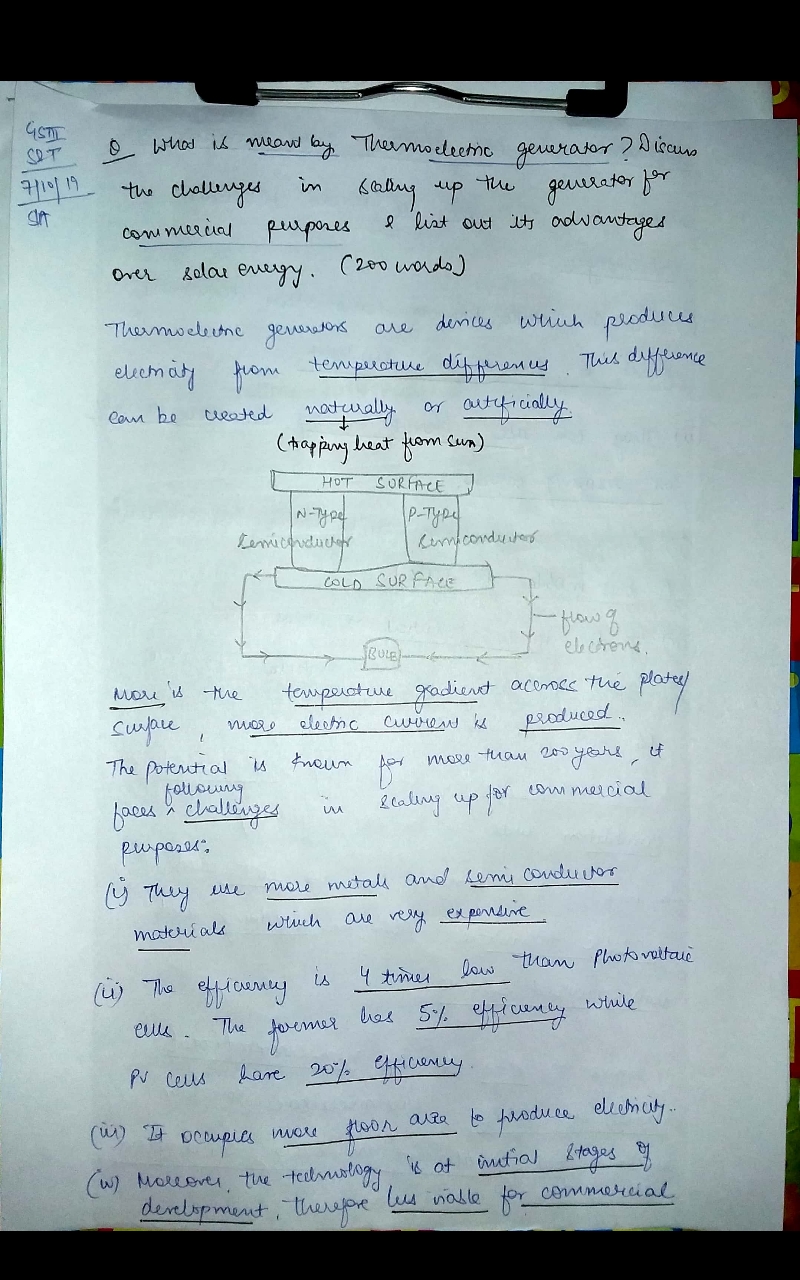 GSIII
S&T
7/10/19
SIA
Q What is meant by Thermoelectric generator? Discuss
the challenges in scaling up the generator for
commercial purposes & list out its advantages
over solar energy. (200 words)
Thermoelectric generators are devices which produces
electricity from temperature differences. This difference
can be created naturally or artificially.
(trapping heat from sun)
HOT SURFACE
N-Type P-Type
Semiconductor Semiconductor
COLD SURFACE
flow of
electrons.
BULB
More is the temperature gradient accross the plates/
surface, more electric current is produced.
The potential is known for more than 200 years, it
following
faces ^ challenges in scaling up for commercial
purposes:
(i) They use more metals and semi conductor
materials which are very expensive.
(ii) The efficiency is 4 times low than Photovoltaic
cells. The former has 5% efficiency while
PV cells have 20% efficiency.
(iii) It occupies more floor area to produce electricity.
(iv) Moreover, the technology is at initial stages of
development, therefore less viable for commercial